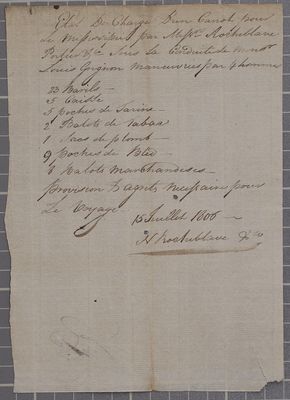 Etat De Charge D'un Canot pour
le Mississipi par Mess.rs Rocheblave
Porlier &c. Sous La Conduite de Mons.r
Louis Grignon Manœuvrés par 4 hommes
23 Barils —
5 Caisse
5 Poches de Farine —
2 Balots de Tabac
1 Sacs de plomb —
9 Poches de Bled —
8 Balots Marchandeses —
provision & agrets Nessaires pour
Le Voyage
15 Juillet 1806 —
N Rocheblave & Co